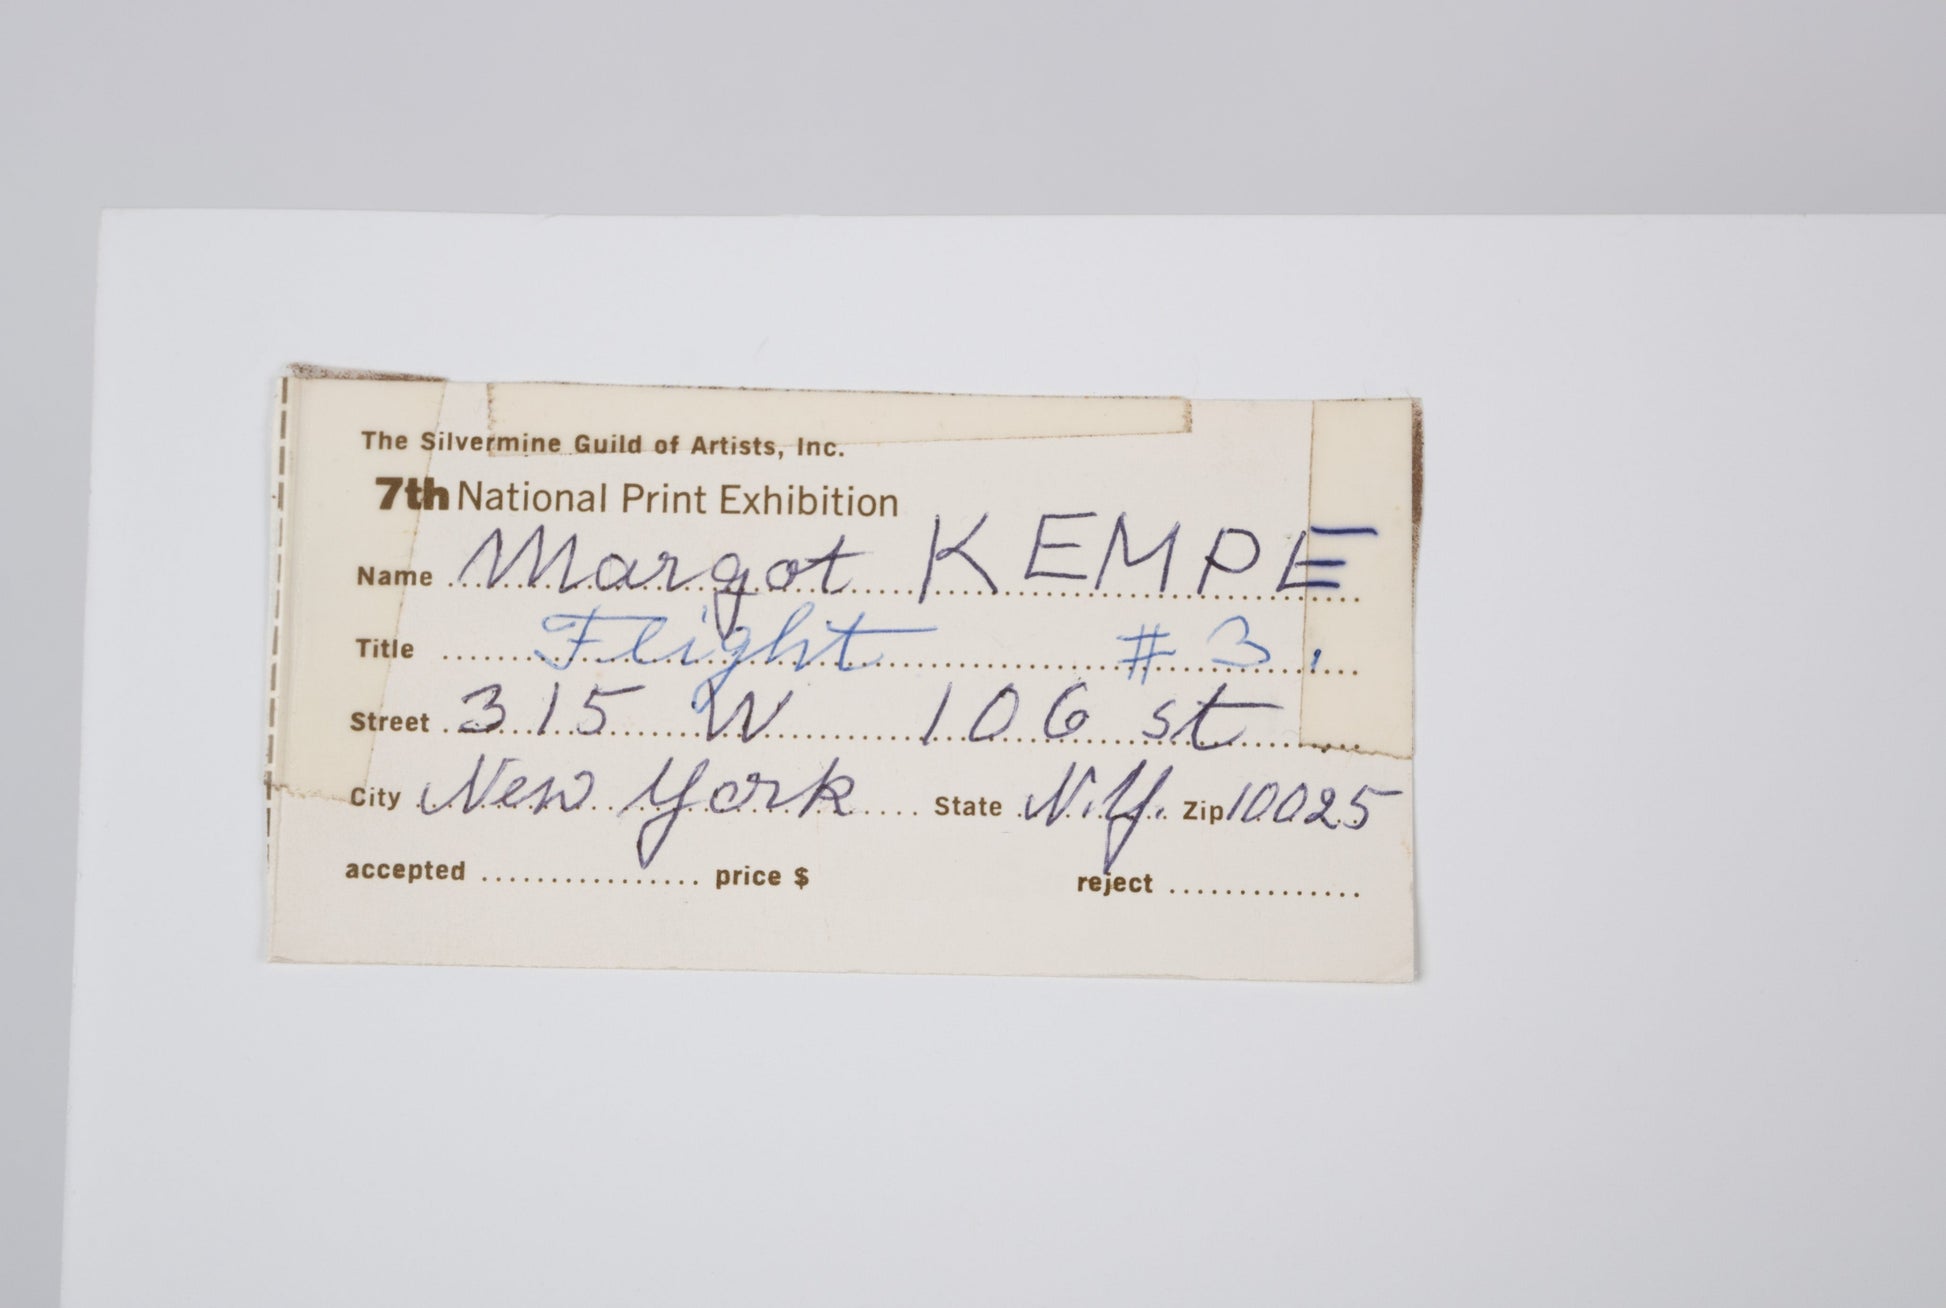 The Silvermine Guild of Artists, Inc.
7th National Print Exhibition
Name Margot KEMPE
Title Flight #3.
Street 315 W 106 st
City New York State N.Y. Zip 10025
accepted ................ price $ reject ..............